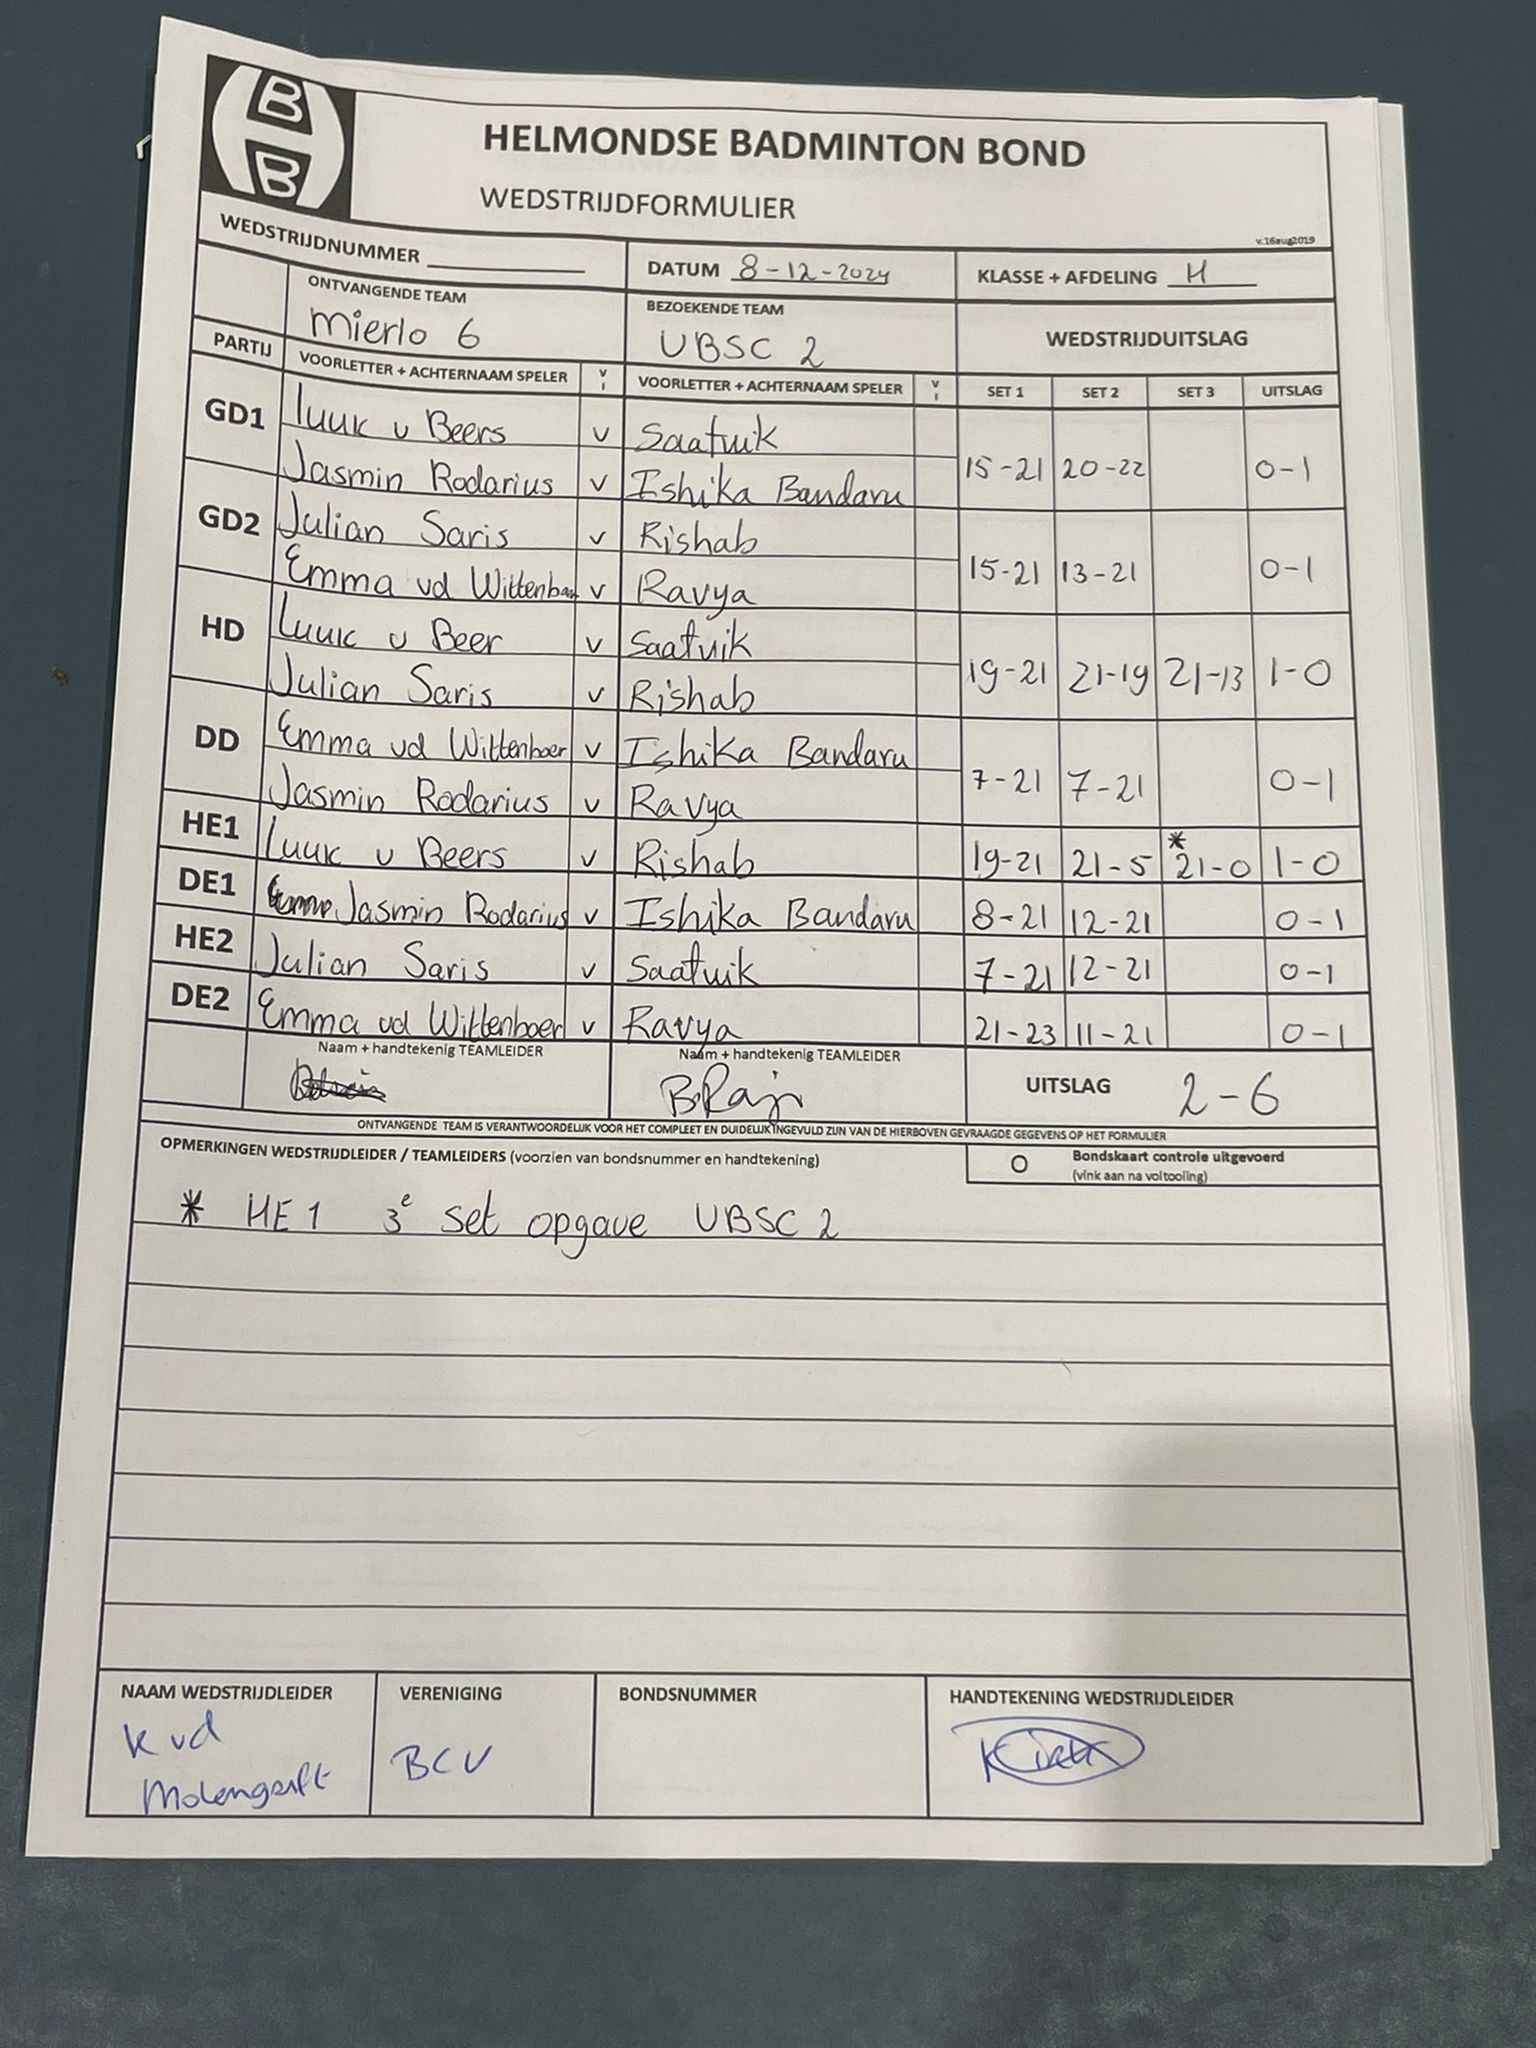 B
B
HELMONDSE BADMINTON BOND
WEDSTRIJDFORMULIER
v.16aug2019
WEDSTRIJDNUMMER
DATUM 8-12-2024
KLASSE + AFDELING H
ONTVANGENDE TEAM
BEZOEKENDE TEAM
Mierlo 6
UBSC 2
WEDSTRIJDUITSLAG
PARTIJ VOORLETTER + ACHTERNAAM SPELER V I VOORLETTER + ACHTERNAAM SPELER V I SET 1 SET 2 SET 3 UITSLAG
GD1 Luuk v Beers v Saatvik
Jasmin Rodarius v Ishika Bandaru 15-21 20-22 0-1
GD2 Julian Saris v Rishab
Emma vd Wittenboer v Ravya 15-21 13-21 0-1
HD Luuk v Beer v Saatvik
Julian Saris v Rishab 19-21 21-19 21-13 1-0
DD Emma vd Wittenboer v Ishika Bandaru
Jasmin Rodarius v Ravya 7-21 7-21 0-1
HE1 Luuk v Beers v Rishab 19-21 21-5 * 21-0 1-0
DE1 Jasmin Rodarius v Ishika Bandaru 8-21 12-21 0-1
HE2 Julian Saris v Saatvik 7-21 12-21 0-1
DE2 Emma vd Wittenboer v Ravya 21-23 11-21 0-1
Naam + handtekenig TEAMLEIDER
Naam + handtekenig TEAMLEIDER
B.Raji
UITSLAG 2-6
ONTVANGENDE TEAM IS VERANTWOORDELIJK VOOR HET COMPLEET EN DUIDELIJK INGEVULD ZIJN VAN DE HIERBOVEN GEVRAAGDE GEGEVENS OP HET FORMULIER
OPMERKINGEN WEDSTRIJDLEIDER / TEAMLEIDERS (voorzien van bondsnummer en handtekening)
O Bondskaart controle uitgevoerd
(vink aan na voltooiing)
* HE1 3e set opgave UBSC 2
NAAM WEDSTRIJDLEIDER
VERENIGING
BONDSNUMMER
HANDTEKENING WEDSTRIJDLEIDER
K vd
BCV